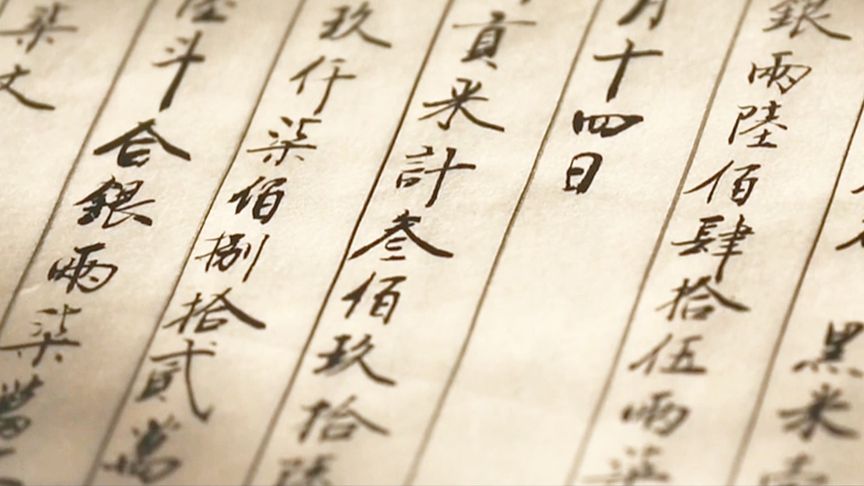 黑米
銀兩陸佰肆拾伍兩柒
月十四日
貢米計叁佰玖拾
玖仟柒佰捌拾貳萬
陸斗合銀兩柒萬
柒文